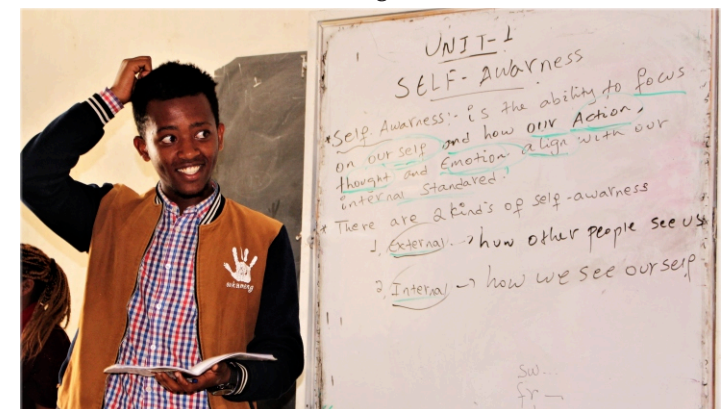 UNIT-1
SELF-AWArness
*Self Awarness:- is the ability to focus
on our self and how our Action,
thought and Emotion align with our
internal Standared.
* There are 2 kind's of self-awarness
1. External -> how other people see us
2. Internal -> how we see our self
sw...